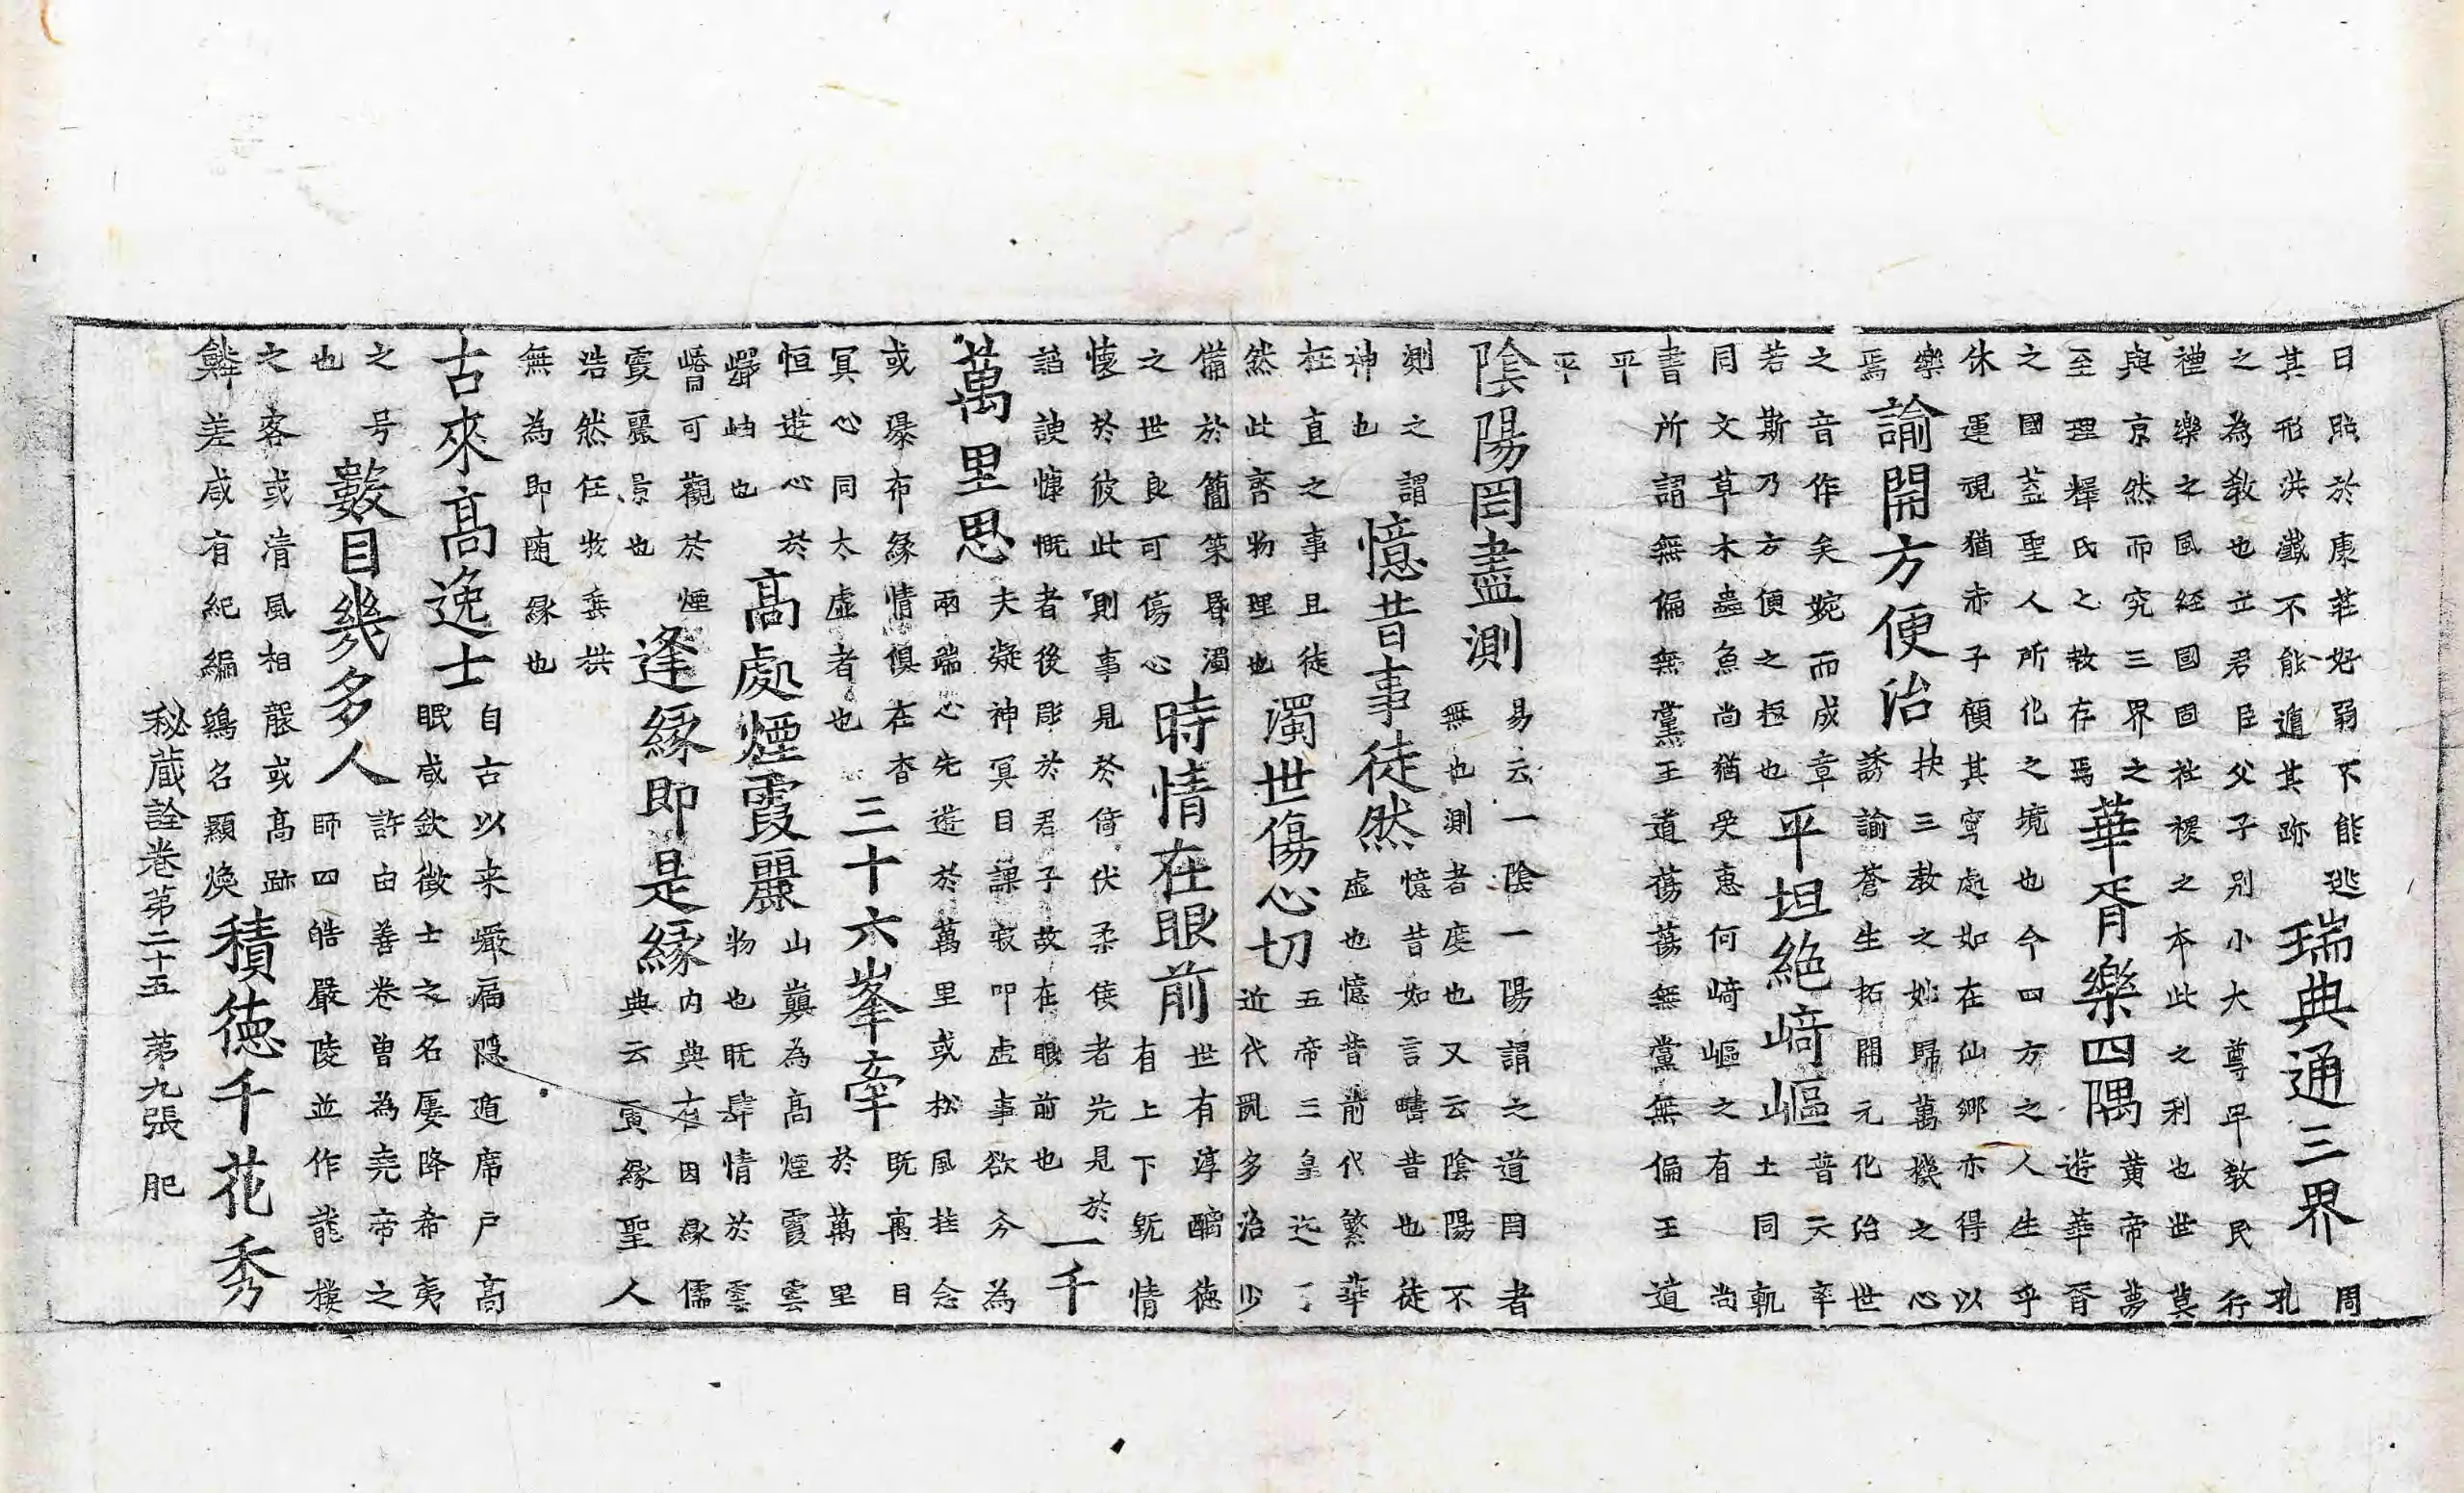 日照於康莊好弱不能逃
其形洪纖不能遁其跡
瑞典通三界
周
孔
之為教也立君臣父子別小大尊卑教民行
禮樂之風経國固社稷之本此之利也世莫
與京然而究三界之
至理釋氏之教存焉
華胥樂四隅
黄帝夢
遊華胥
之國盖聖人所化之境也今四方之人生乎
休運視猶赤子顧其寧處如在仙鄉亦得以
樂
焉
諭開方便治
扶三教之妙歸萬機之心
誘諭蒼生拓開元化治世
之音作矣婉而成章
若斯乃方便之極也
平坦絶崎嶇
普天率
土同軌
同文草木蟲魚尚猶受惠何崎嶇之有尚
書所謂無偏無黨王道蕩蕩無黨無偏王道
平
平
陰陽罔盡測
易云一陰一陽謂之道罔者
無也測者度也又云陰陽不
測之謂
神也
憶昔事徒然
憶昔如言疇昔也徒
虛也憶昔前代繁華
枉直之事且徒
然此吝物理也
濁世傷心切
五帝三皇迄了
近代多治少
備於簡策濁
之世良可傷心
時情在眼前
世有淳醨德
有上下甄情
懷於彼此則事見於倚伏柔佞者先見於
諂諛慷慨者後彫於君子故在眼前也
一千
萬里思
夫凝神冥目課寂叩虛事欲令為
兩端心先遊於萬里或松風挂念
或瀑布緣情俱在杳
冥心同太虛者也
三十六峯牽
既寓目
於萬里
恒遊心於
巖岫也
高處煙霞麗
山巔為高煙霞雲
物也既肆情於雲
嶠可觀於煙
霞麗景也
逢緣即是緣
内典有因緣儒
典云夤緣聖人
浩然任牧垂拱
無為即随緣也
古來高逸士
自古以来巖扃隠遁席户高
眠咸欽徵士之名屢降希夷
之号
也
藪目幾多人
許由善卷曽為堯帝之
師四皓嚴陵並作龍樓
之客或清風相襲或高跡
差咸有紀編鴻名顯煥
積德千花秀
秘蔵詮卷第二十五 第九張 肥